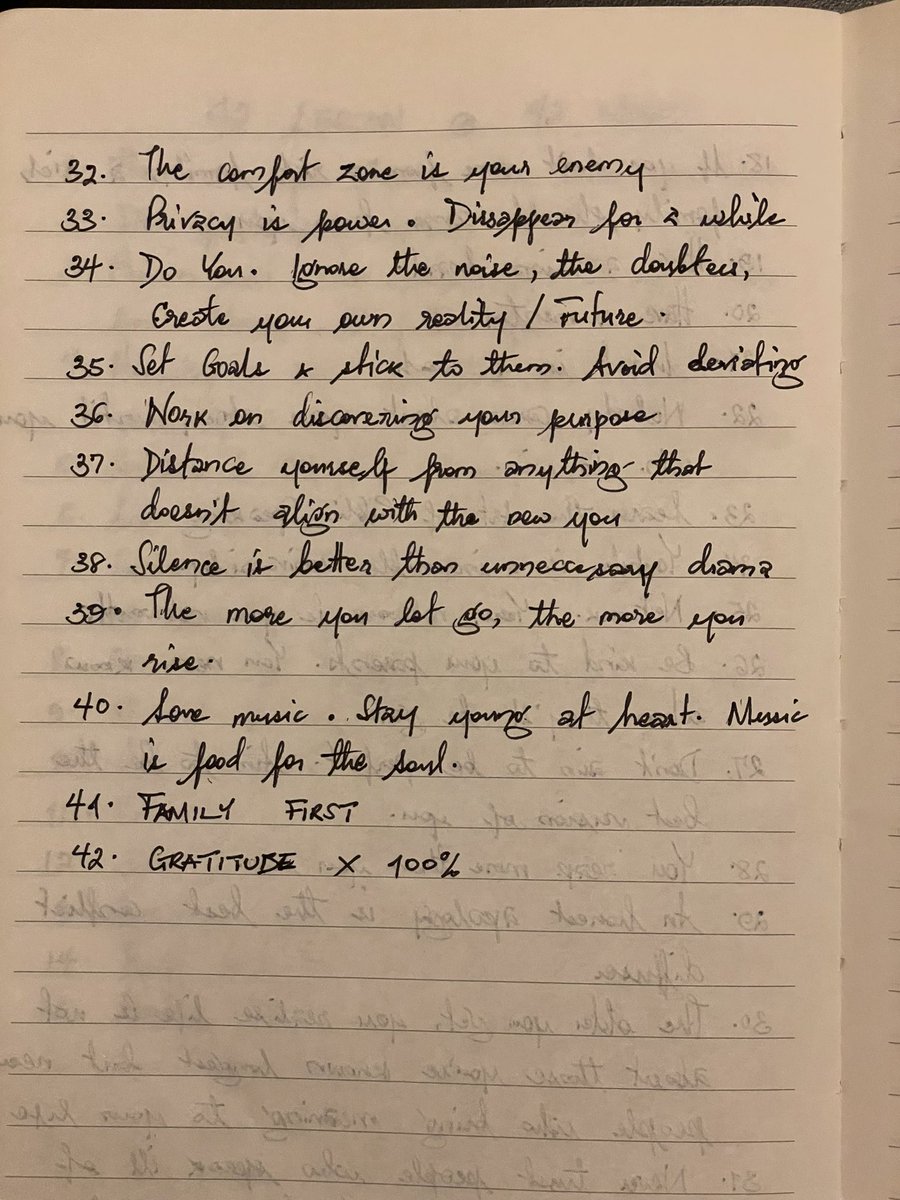 32. The comfort zone is your enemy
33. Privacy is power. Dissappear for a while
34. Do You. Ignore the noise, the doubters,
Create your own reality / Future.
35. Set Goals & stick to them. Avoid deviating
36. Work on discovering your purpose
37. Distance yourself from anything that
doesn't align with the new you
38. Silence is better than unneccesary drama
39. The more you let go, the more you
rise.
40. Love music. Stay young at heart. Music
is food for the soul.
41. FAMILY FIRST
42. GRATITUDE X 100%